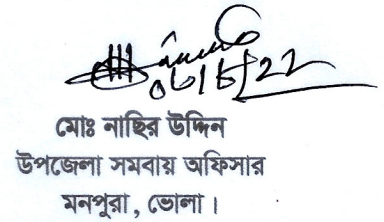 ০৮/৮/২২
মোঃ নাছির উদ্দিন
উপজেলা সমবায় অফিসার
মনপুরা, ভোলা।